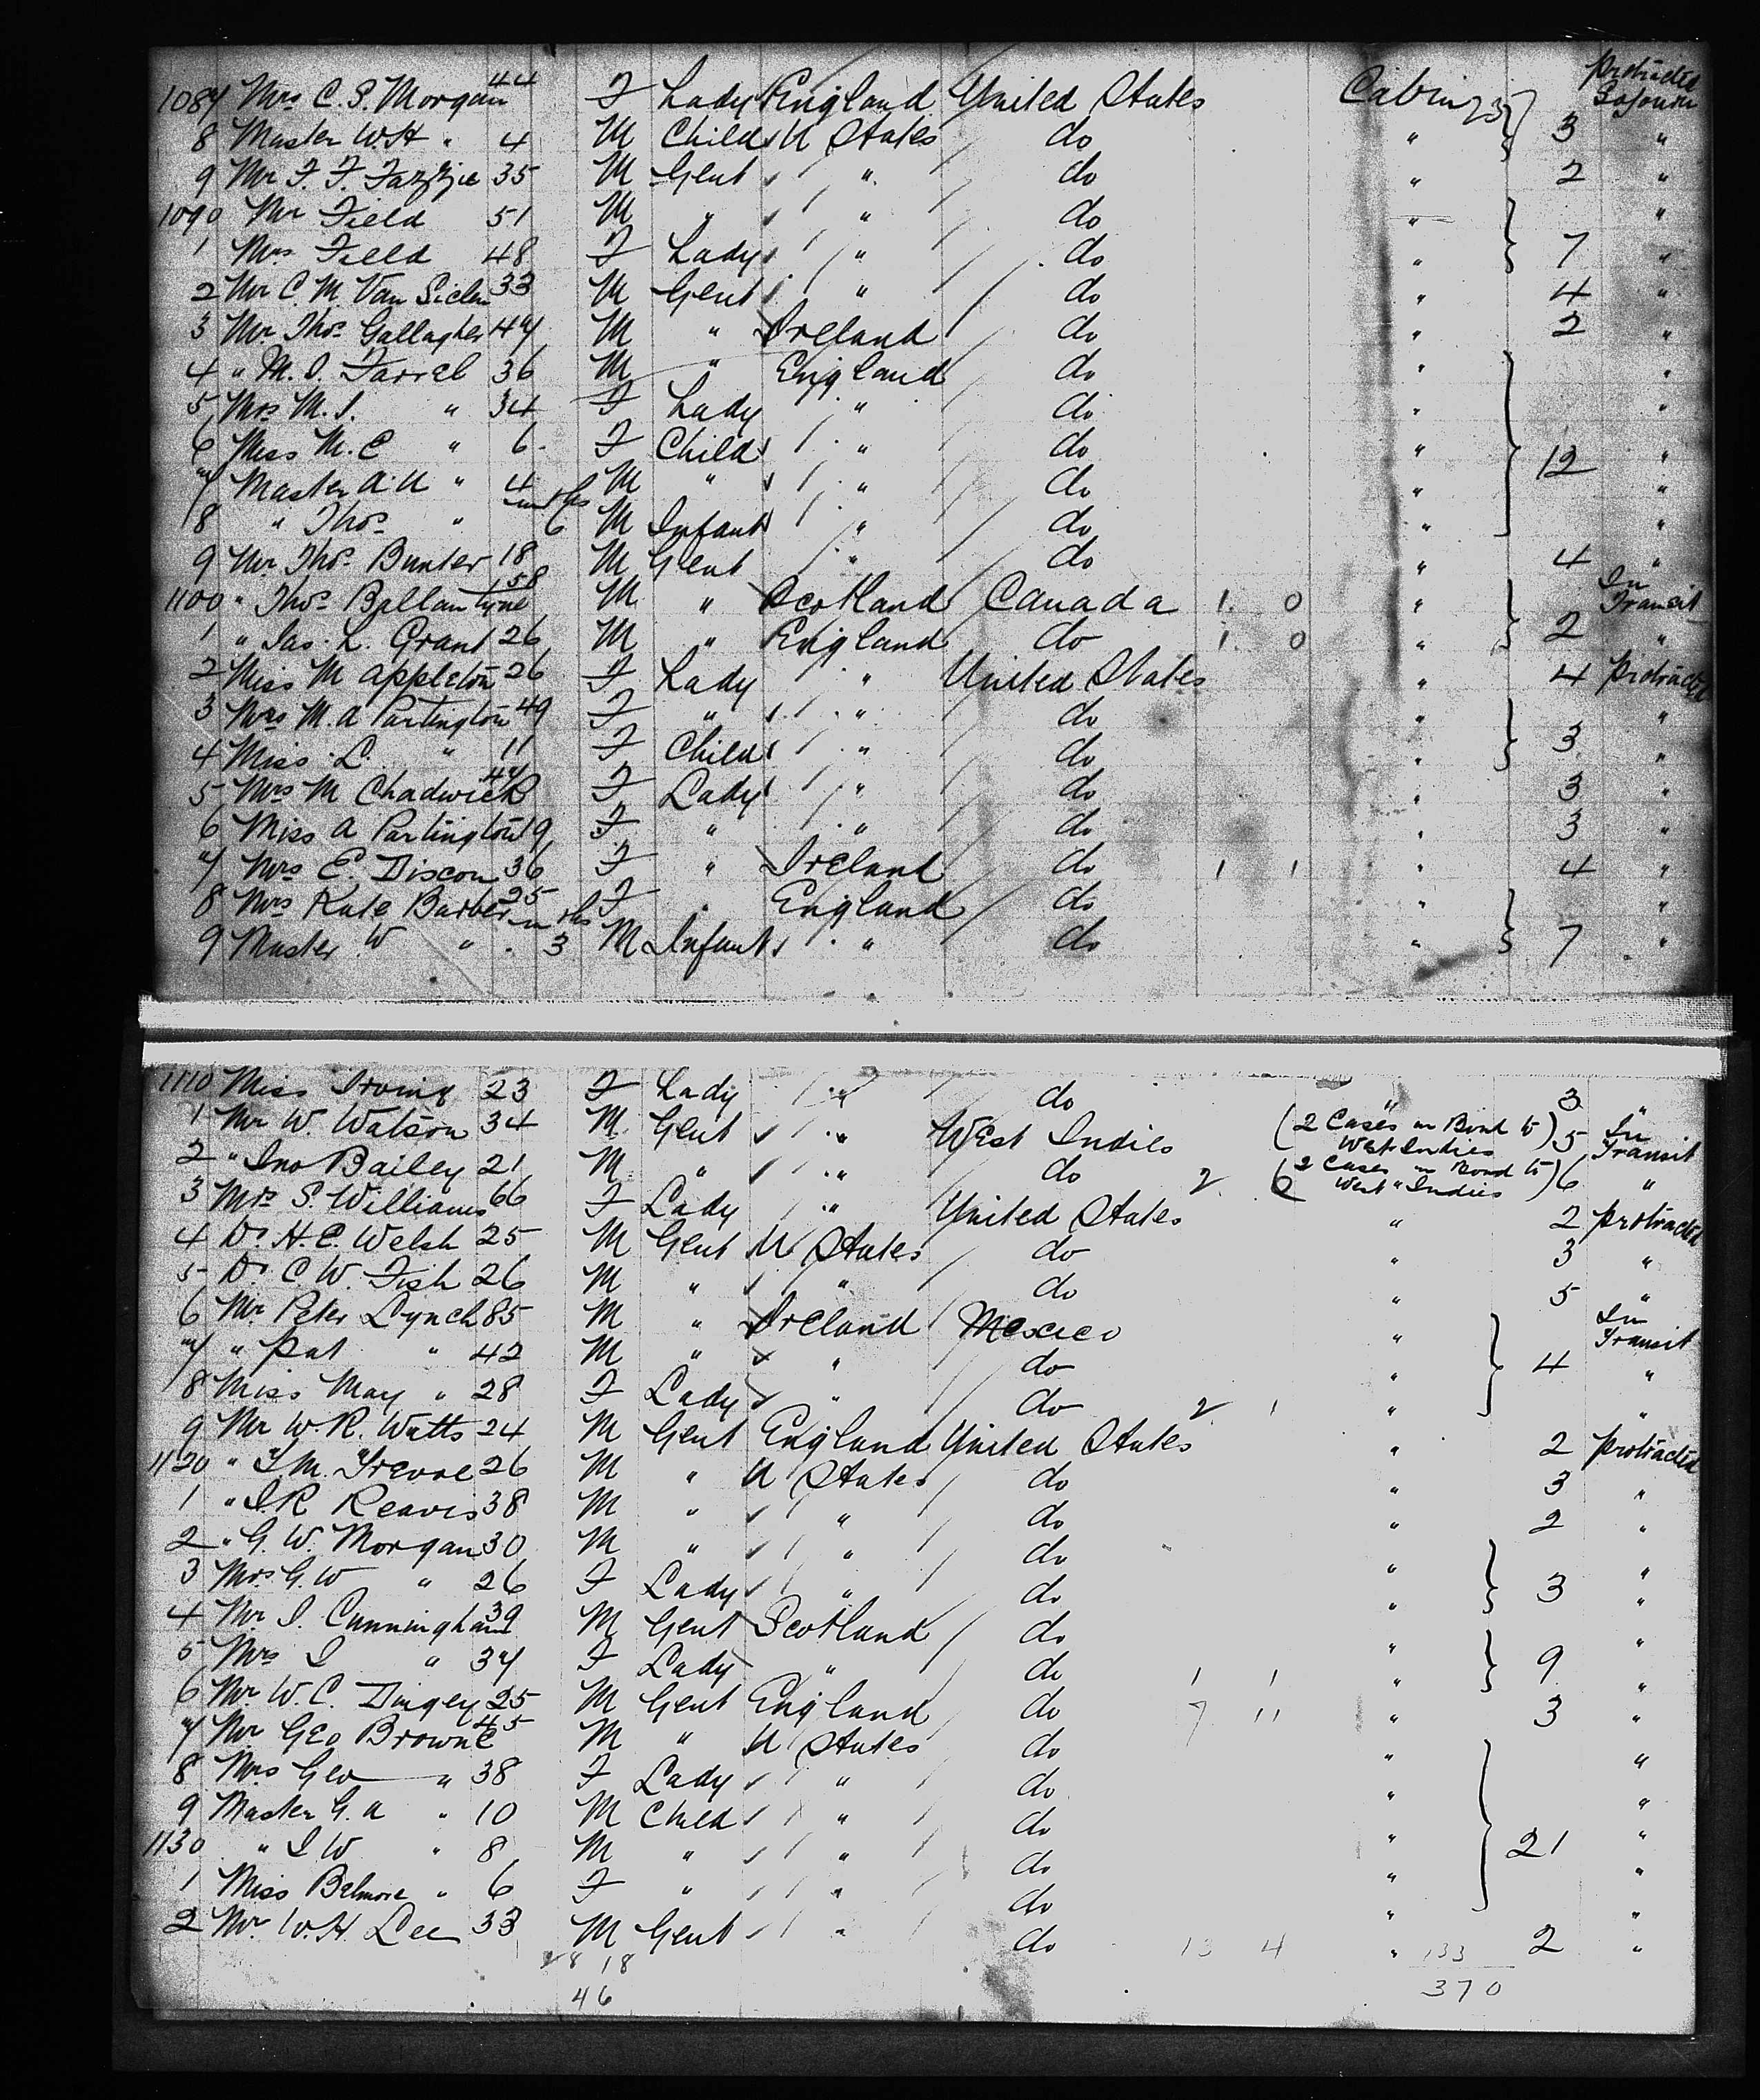 1087 Mrs C. S. Morgan 44 F Lady England United States Cabin 23 Protracted Sojourn
8 Master W H " 4 M Child U States do " 3 "
9 Mr F. F. Fazzie 35 M Gent " do " 2 "
1090 Mr Field 51 M " " do " "
1 Mrs Field 48 F Lady " do " 7 "
2 Mr C. M. Van Siclen 33 M Gent " do " 4 "
3 Mr Thos Gallagher 47 M " Ireland do " 2 "
4 " M. J. Farrel 36 M " England do " "
5 Mrs M. J. " 34 F Lady " do " "
6 Miss M. E " 6 F Child " do " 12 "
7 Master A. U " 4 M " " do " "
8 " Thos " mths 6 M Infant " do " "
9 Mr Thos Bunter 18 M Gent " do " 4 "
1100 " Thos Ballantyne 58 M " Scotland Canada 1 0 " In Transit
1 " Jas. L. Grant 26 M " England do 1 0 " 2 "
2 Miss M Appleton 26 F Lady " United States " 4 Protracted
3 Mrs M. A Partington 49 F " " do " "
4 Miss L. " 11 F Child " do " 3 "
5 Mrs M Chadwick 47 F Lady " do " 3 "
6 Miss A Partington 19 F " " do " 3 "
7 Mrs E. Discon 36 F " Ireland do 1 1 " 4 "
8 Mrs Kate Barber 25 F " England do " "
9 Master W " mths 3 M Infant " do " 7 "
1110 Miss Irving 23 F Lady " do " 3 "
1 Mr W. Watson 34 M Gent " West Indies (2 Cases in Bond to West Indies) 5 In Transit
2 " Jno Bailey 21 M " " do 2 (2 Cases in Bond to West Indies) 6 "
3 Mrs S. Williams 66 F Lady " United States " 2 Protracted
4 Dr H. E. Welsh 25 M Gent U States do " 3 "
5 Dr C. W. Fish 26 M " " do " 5 "
6 Mr Peter Lynch 85 M " Ireland Mexico " In Transit
7 " Pat " 42 M " " do " 4 "
8 Miss May " 28 F Lady " do 2 1 " "
9 Mr W. R. Watts 24 M Gent England United States " 2 Protracted
1120 " 26 M " U States do " 3 "
1 " J. R Reavis 38 M " " do " 2 "
2 " G. W. Morgan 30 M " " do " "
3 Mrs G. W " 26 F Lady " do " 3 "
4 Mr J. Cunningham 39 M Gent Scotland do " "
5 Mrs J " 37 F Lady " do 1 1 " 9 "
6 Mr W. C. Dingey 25 M Gent England do 7 11 " 3 "
7 Mr Geo Browne 45 M " U States do " "
8 Mrs Geo " 38 F Lady " do " "
9 Master G. A " 10 M Child " do " "
1130 " J W " 8 M " " do " 21 "
1 Miss Belmore " 6 F " " do " "
2 Mr W. H. Lee 33 M Gent " do 13 4 " 133 2 "
28 18
46 370